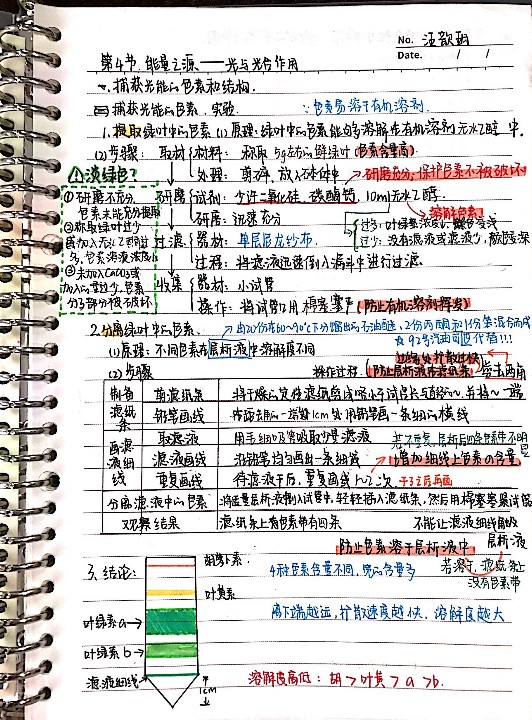 No. 汪歆玥
Date. / /
第4节 能量之源——光与光合作用
一、捕获光能的色素和结构.
捕获光能的色素. 实验. ∵色素易溶于有机溶剂.
1. 提取绿叶中的色素 (1)原理:绿叶中的色素能够溶解在有机溶剂无水乙醇 中.
(2)步骤: 取材 材料: 称取 5g左右的鲜绿叶 (色素含量高)
处理: 剪碎, 放入研钵中 研磨充分, 保护色素不被破坏
①淡绿色?
①研磨不充分, 色素未能充分提取
②称取绿叶过少 或加入无水乙醇过多, 色素溶液浓度小
③未加入CaCO₃或加入过少, 色素分子部分被破坏
研磨 试剂: 少许二氧化硅, 碳酸钙, 10ml无水乙醇.
溶解色素
研磨: 迅速充分
过多: 叶绿素浓度小, 颜色变浅
过少: 没有滤液或滤液少, 颜色变深
过滤 器材: 单层尼龙纱布.
过程: 将滤液迅速倒入漏斗中进行过滤.
收集 器材: 小试管
操作: 将试管口用棉塞塞严 (防止有机溶剂挥发)
2. 分离绿叶中的色素. 由20份在60~90℃下分馏出的石油醚, 2份丙酮和1份苯混合而成
☆ 92号汽油可代替!!!
(1)原理: 不同色素在层析液中溶解度不同
(2)步骤 操作过程 防止层析液沿滤纸条 剪去两角
制备滤纸条 剪滤纸条
铅笔画线
画滤液细线 取滤液 用毛细吸管吸取少量滤液 若不重复, 层析后四条色素带不明显
滤液画线 增加细线上色素的含量
重复画线 待滤液干后, 重复画线1~2次 干了之后再画
分离滤液中的色素 将适量层析液倒入试管中, 轻轻插入滤纸条, 然后用棉塞塞紧试管
观察结果 滤纸条上有色素带有四条 不能让滤液细线触及层析液
防止色素溶于层析液中 若溶了, 滤纸条上没有色素带
3. 结论: 胡萝卜素 4种色素含量不同, 宽的含量多
叶黄素
离下端越远, 扩散速度越快, 溶解度越大
叶绿素a→
叶绿素b→
滤液细线→ 1cm 溶解度高低: 胡>叶黄>a>b.